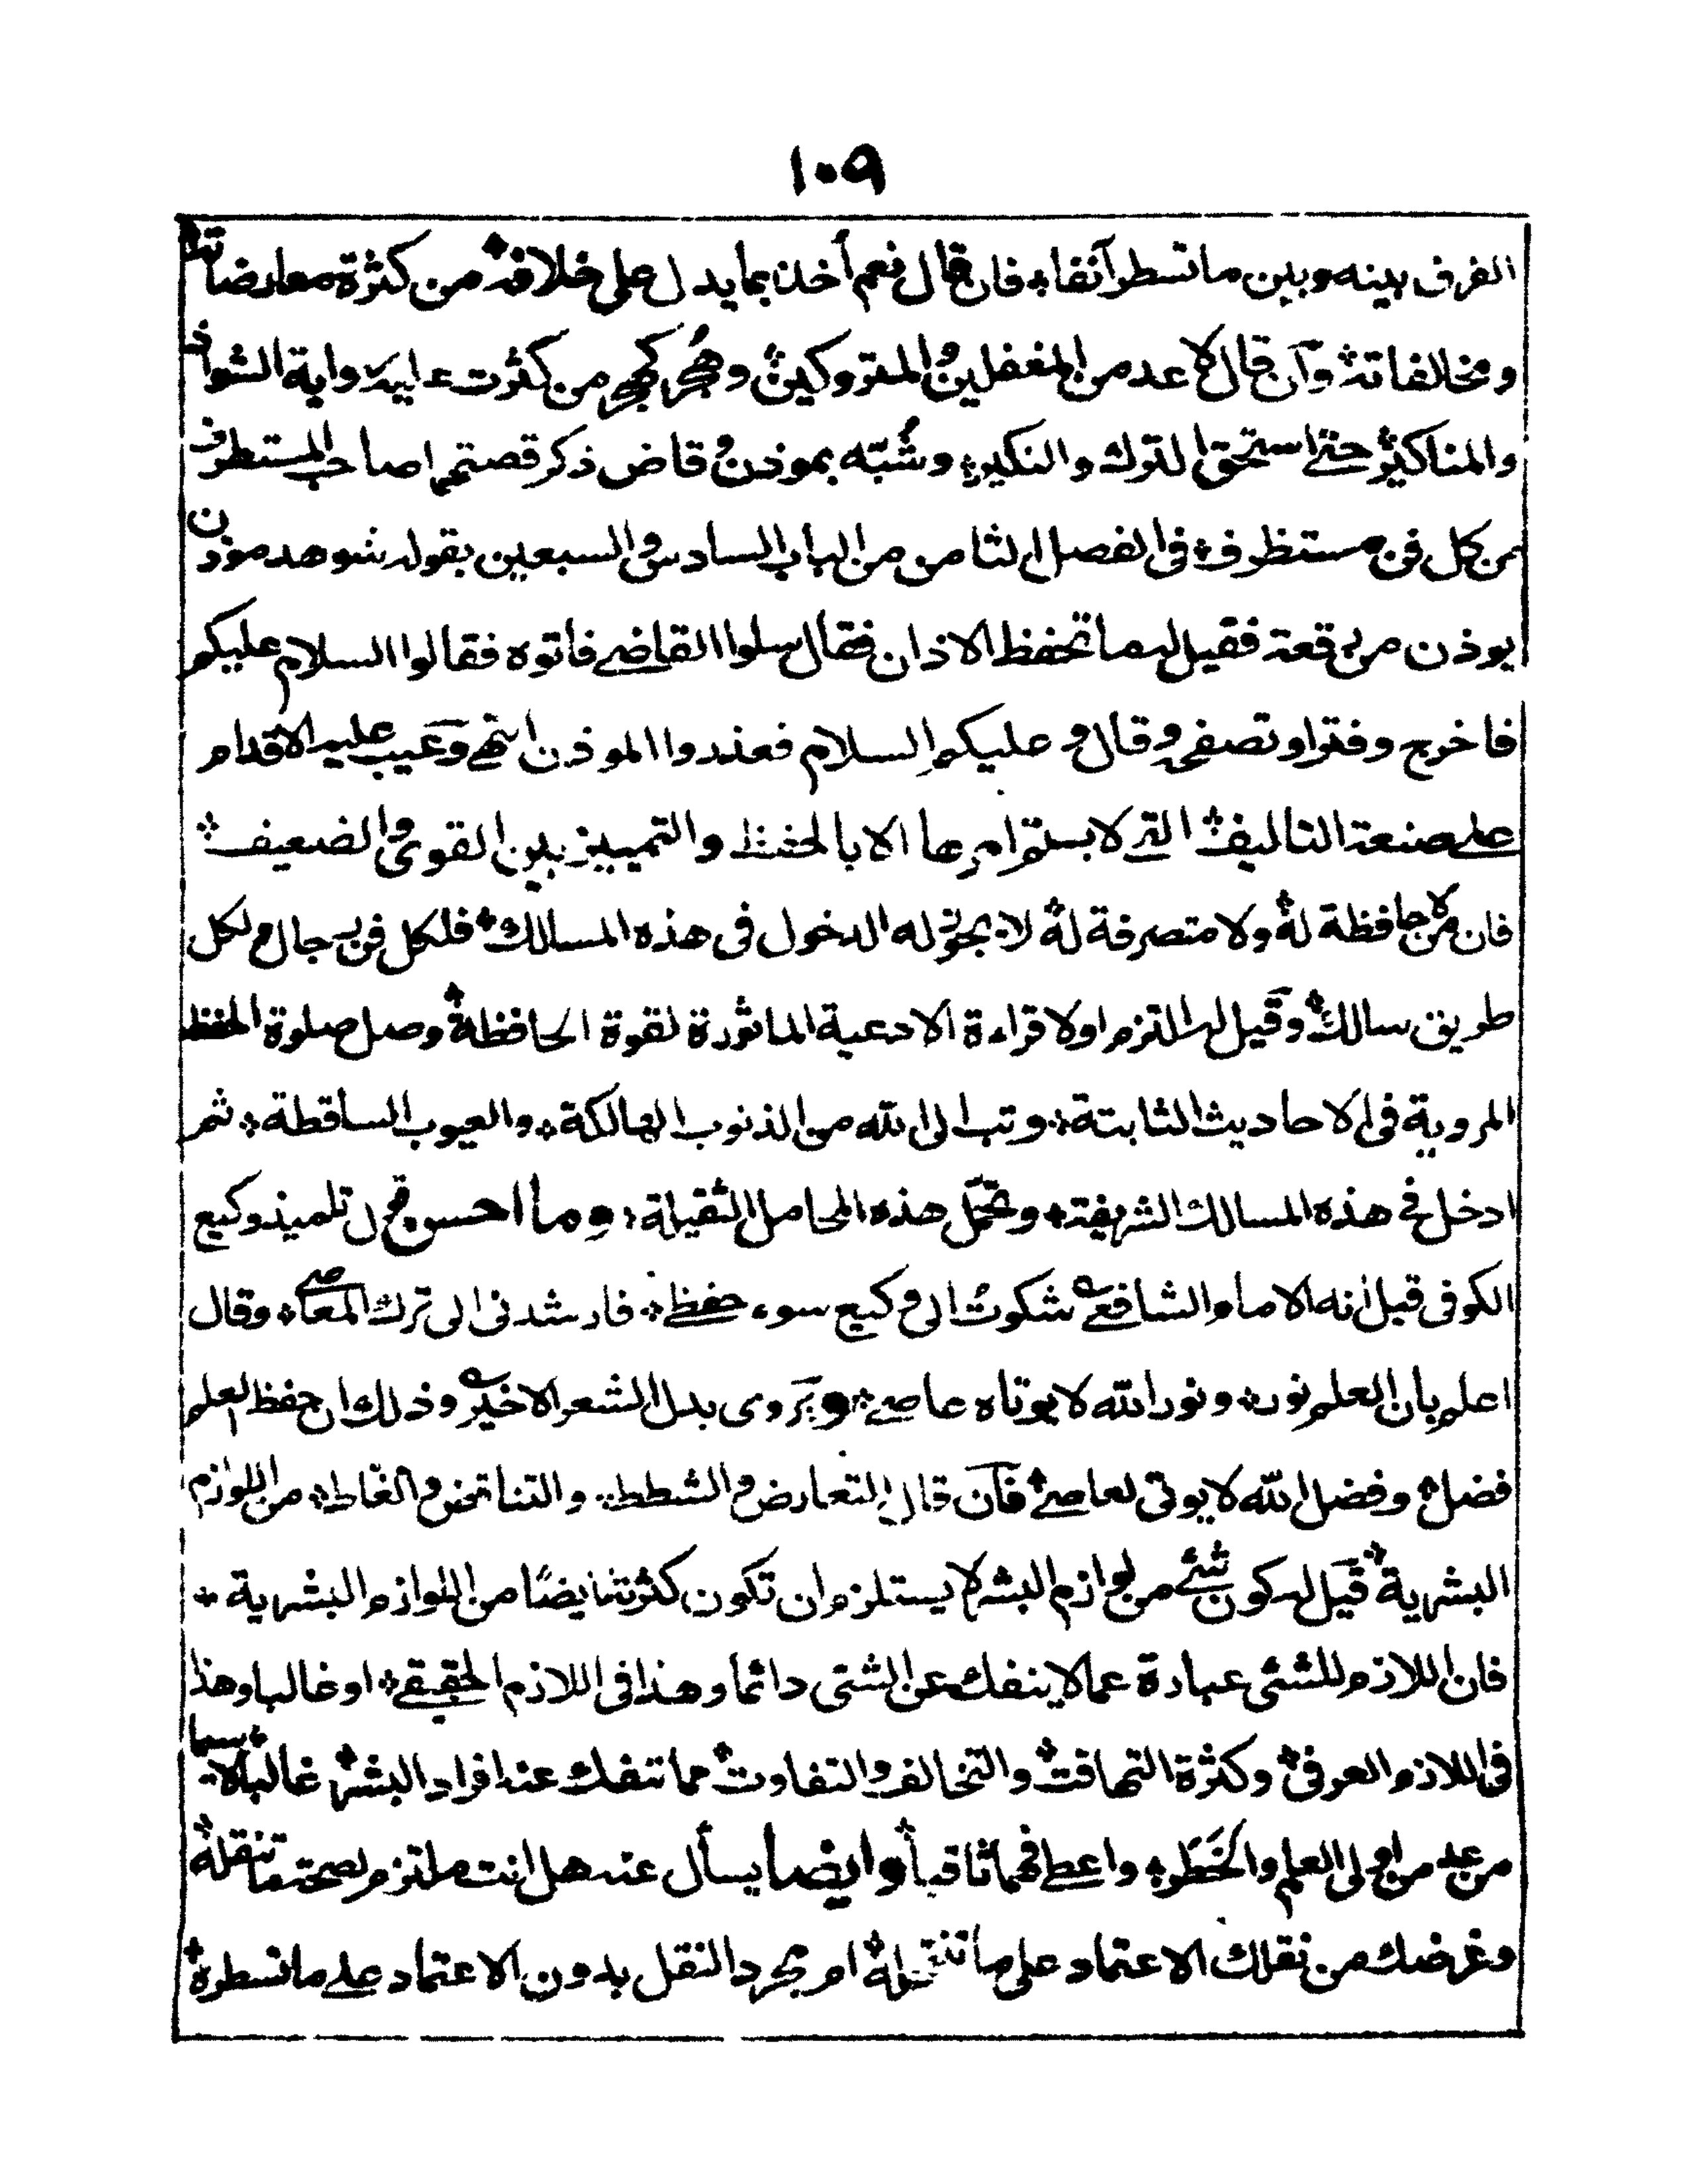 ١٠٩
الفرق بينه وبين ما تسطر آنفا ۞ فان قال نعم أخذ بما يدل على خلافه ۞ من كثرة معارضاته
ومخالفاته ۞ وان قال لا عد من المغفلين والمتروكين ۞ وهُجر كهجر من كثرت عليه رواية الشواذ
والمناكير ۞ حتى استحق الترك والنكير ۞ وشُبّه بموذن وقاض ذكر قصتهما صاحب المستطرف
من كل فن مستظرف ۞ فى الفصل الثامن من الباب السادس والسبعين بقوله شوهد موذن
يوذن من رقعة فقيل له ما تحفظ الاذان فقال سلوا القاضى فاتوه فقالوا السلام عليكم
فاخرج دفترا وتصفحه وقال وعليكم السلام فعذروا الموذن انتهى وعيب عليه الاقدام
على صنعة التاليف ۞ التى لا يستتم امرها الا بالحفظ والتمييز بين القوى والضعيف ۞
فان من لا حافظة له ۞ ولا متصرفة له ۞ لا يجوز له الدخول فى هذه المسالك ۞ فلكل فن رجال ولكل
طريق سالك ۞ وقيل له التزم اولا قراءة الادعية الماثورة لقوة الحافظة ۞ وصل صلوة الحفظ
المروية فى الاحاديث الثابتة ۞ وتب الى الله من الذنوب الهالكة ۞ والعيوب الساقطة ۞ ثم
ادخل فى هذه المسالك الشريفة ۞ وتحمّل هذه المحامل الثقيلة ۞ وما احسن قول تلميذ وكيع
الكوفى قيل انه الامام الشافعى شكوتُ الى وكيع سوء حفظى ۞ فارشدنى الى ترك المعاصى ۞ وقال
اعلم بان العلم نور ۞ ونور الله لا يوتاه عاصى ۞ ويروى بدل الشعر الاخير وذلك ان حفظ العلم
فضل ۞ وفضل الله لا يوتى لعاصى ۞ فان قال التعارض والشطط ۞ والتناقض والغلط ۞ من اللوازم
البشرية ۞ قيل له كون شئ من لوازم البشر لا يستلزم ان تكون كثرته ايضًا من اللوازم البشرية ۞
فان اللازم للشئى عبارة عما لا ينفك عن الشئى دائما وهذا فى اللازم الحقيقى ۞ او غالبا وهذا
فى اللازم العرفى ۞ وكثرة التهافت ۞ والتخالف والتفاوت ۞ مما تنفك عنه افراد البشر ۞ غالبا لا سيما
من عد من اولى العلم والخَطَر ۞ واعطى فهما ثاقبا ۞ وايضا يسأل عنه هل انت ملتزم لصحة ما تنقله ۞
وغرضك من نقلك الاعتماد على ما تنتحله ۞ ام مجرد النقل بدون الاعتماد على ما تسطره ۞